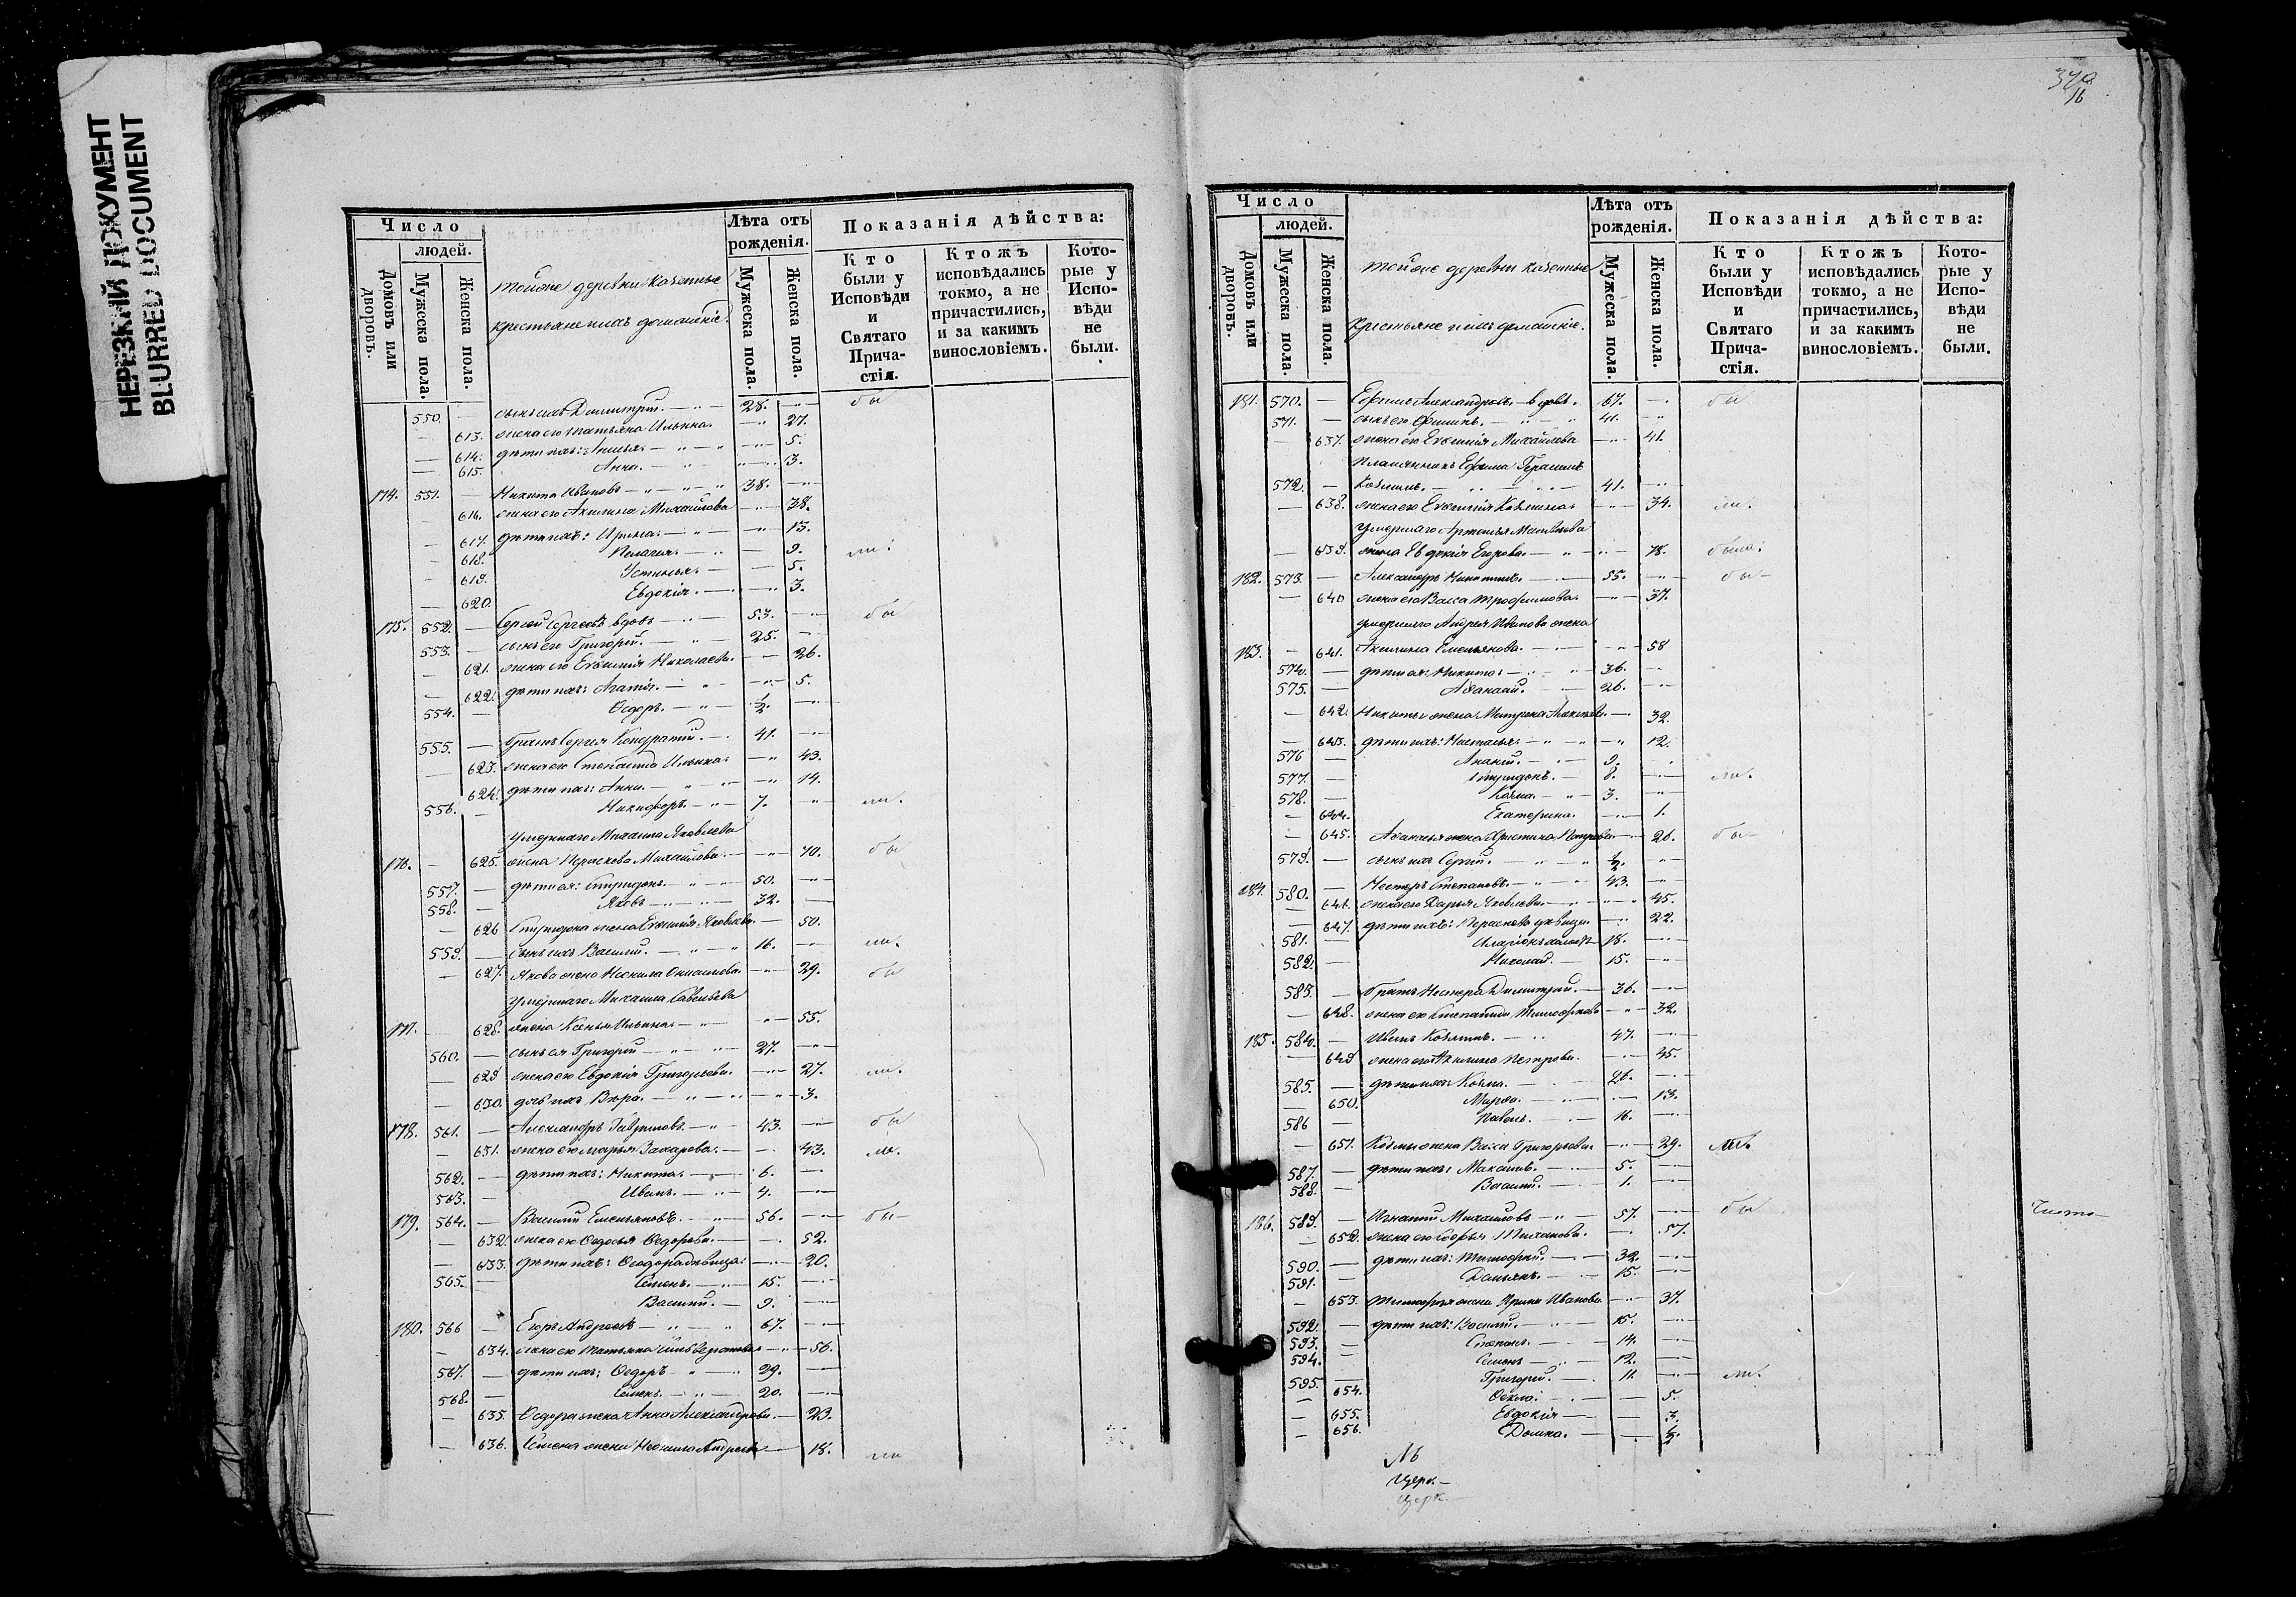 НЕРЕЗКИЙ ДОКУМЕНТ
BLURRED DOCUMENT
Число
людей.
Домовъ или дворовъ.
Мужеска пола.
Женска пола.
тойже деревни казенные
крестьяне и ихъ домашніе.
Лѣта отъ рожденія.
Мужеска пола.
Женска пола.
Показанія дѣйства:
Кто были у Исповѣди и Святаго Причастія.
Ктожъ исповѣдались токмо, а не причастились, и за какимъ винословіемъ.
Которые у Исповѣди не были.
550. — сынъ ихъ Димитрій. 28. — бы
— 613. жена его Татьяна Ильина. — 27.
— 614. дѣти ихъ: — 5.
— 615. Анна. — 3.
174. 551. — Никита Ивановъ 38. —
— 616. жена его Акилина Михайлова — 38.
— 617. дѣти ихъ: Ирина. — 13.
— 618. Пелагея. — 9. мл.
— 619. Устинья. — 5.
— 620. Евдокія. — 3.
175. 552. — Сергей Сергеевъ вдовъ 53. — бы
553. — сынъ его Григорій. 25. —
— 621. жена его Евгенія Николаева. — 26.
— 622. дѣти ихъ: Агафія. — 5.
554. — Ѳедоръ. ½. —
555. — братъ Сергея Кондратій. 41. —
— 623. жена его Степанида Ильина. — 43.
— 624. дѣти ихъ: Анна. — 14.
556. — Никифоръ. 7. — мл.
умершаго Михаила Яковлева
176. — 625. жена Параскева Михайлова. — 70. бы
557. — дѣти ея: Спиридонъ. 50. —
558. — Яковъ 32. —
— 626 Спиридона жена Евгенія Яковлева. — 50.
559. — сынъ ихъ Василій. 16. — мл.
— 627. Якова жена Неонила Онисимова. — 29. бы
умершаго Михаила Савельева
177. — 628. жена Ксенья Ильина. — 55.
560. — сынъ ея Григорій 27. —
— 629 жена его Евдокія Григорьева. — 27. мл.
— 630. дочь ихъ Вѣра. — 3.
178. 561. — Александръ Гавриловъ. 43. — бы
— 631. жена его Марья Захарова. — 43. мл.
562. — дѣти ихъ: Никита. 6. —
563. — Иванъ. 4. —
179. 564. — Василій Емельяновъ. 56. — бы
— 632. жена его Ѳедосья Ѳедорова. — 52.
— 633. дѣти ихъ: Ѳеодора дѣвица. — 20.
565. — Семенъ. 15. —
Василій. 9. —
180. 566 — Егоръ Андреевъ 67. —
— 634. жена его Татьяна — 56.
567. — дѣти ихъ: Ѳедоръ 29. —
568. — Семенъ. 20. —
— 635. Ѳедора жена Анна Александрова. — 23.
— 636. Семена жена Неонила Андреева — 18. мл
16
Число
людей.
Домовъ или дворовъ.
Мужеска пола.
Женска пола.
тойже деревни казенные
крестьяне и ихъ домашніе.
Лѣта отъ рожденія.
Мужеска пола.
Женска пола.
Показанія дѣйства:
Кто были у Исповѣди и Святаго Причастія.
Ктожъ исповѣдались токмо, а не причастились, и за какимъ винословіемъ.
Которые у Исповѣди не были.
181. 570. — Ефимъ Александровъ вдовъ. 67. — бы
571. — сынъ его Филипъ. 41. —
— 637. жена его Евгенія Михайлова — 41.
племянникъ Ефима Герасимъ
572. — Козминъ. 41. —
— 638. жена его Евгенія Козмина. — 34. мл.
умершаго Артемья Матвѣева
— 639. жена Евдокія Егорова. — 78. была.
182. 573. — Александръ Никитинъ. 55. — бы
— 640 жена его Васса Трофимова. — 37.
умершаго Андрея Иванова жена
183. — 641. Акилина Емельянова. — 58
574. — дѣти ея: Никита. 36. —
575. — Афанасій. 26. —
— 642. Никиты жена Матрена — 32.
— 643. дѣти ихъ: Настасья. — 12.
576 — Ананій. 9.
577. — Спиридонъ. 8. — мл.
578. — Козма. 3. —
— 644. Екатерина. — 1.
— 645. Афанасья жена Христина Петрова — 26. бы
579. — сынъ ихъ Сергій. ½. —
184. 580. — Несторъ Степановъ. 43. —
— 646. жена его Дарья Яковлева. — 45.
— 647. дѣти ихъ: Параскева дѣвица. — 22.
581. — Иларіонъ холостъ 18. —
582. — Николай. 15. —
583. — братъ Нестора Димитрій. 36. —
— 648. жена его Степанида Тимофеева — 32.
185. 584. — Иванъ Козминъ. 47. —
— 649 жена его Акилина Петрова. — 45.
585. — дѣти ихъ: Козма. 26. —
— 650. Марѳа. — 13.
586 — Павелъ. 16. —
— 651. Козмы жена Васса Григорьева. — 29. мл.
587. — дѣти ихъ: Максимъ. 5. —
588. — Василій. 1. —
186. 589. — Игнатій Михайловъ 57. — бы
— 652. жена его Софья Тиханова. — 57.
590. — дѣти ихъ: Тимофей. 32. —
591. — Демьянъ. 15. —
— 653. Тимофея жена Ирина Иванова — 37.
592. — дѣти ихъ: Василій. 15. —
593. — Степанъ. 14. —
594. — Семенъ 12. —
595. — Григорій. 11. — мл.
— 654. Ѳекла. — 5.
— 655. Евдокія — 3.
— 656. Домна. — ½.